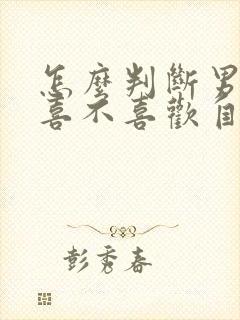 怎麼判斷男
喜不喜歡自
彭秀春